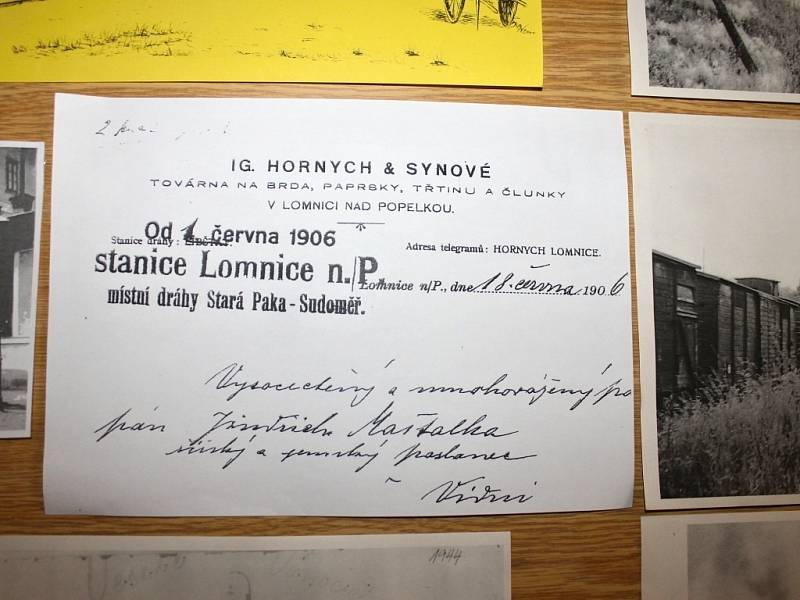 IG. HORNYCH & SYNOVÉ
TOVÁRNA NA BRDA, PAPRSKY, TŘTINU A ČLUNKY
V LOMNICI NAD POPELKOU.
Od 1. června 1906
Stanice dráhy:
Adresa telegramů: HORNYCH LOMNICE.
stanice Lomnice n./P.
Lomnice n/P., dne 18. června 1906
místní dráhy Stará Paka - Sudoměř.
Vysocectěný a mnohovážený pa
pán Jindrich Maštalka
říšský a zemský poslanec
Vídni
1944